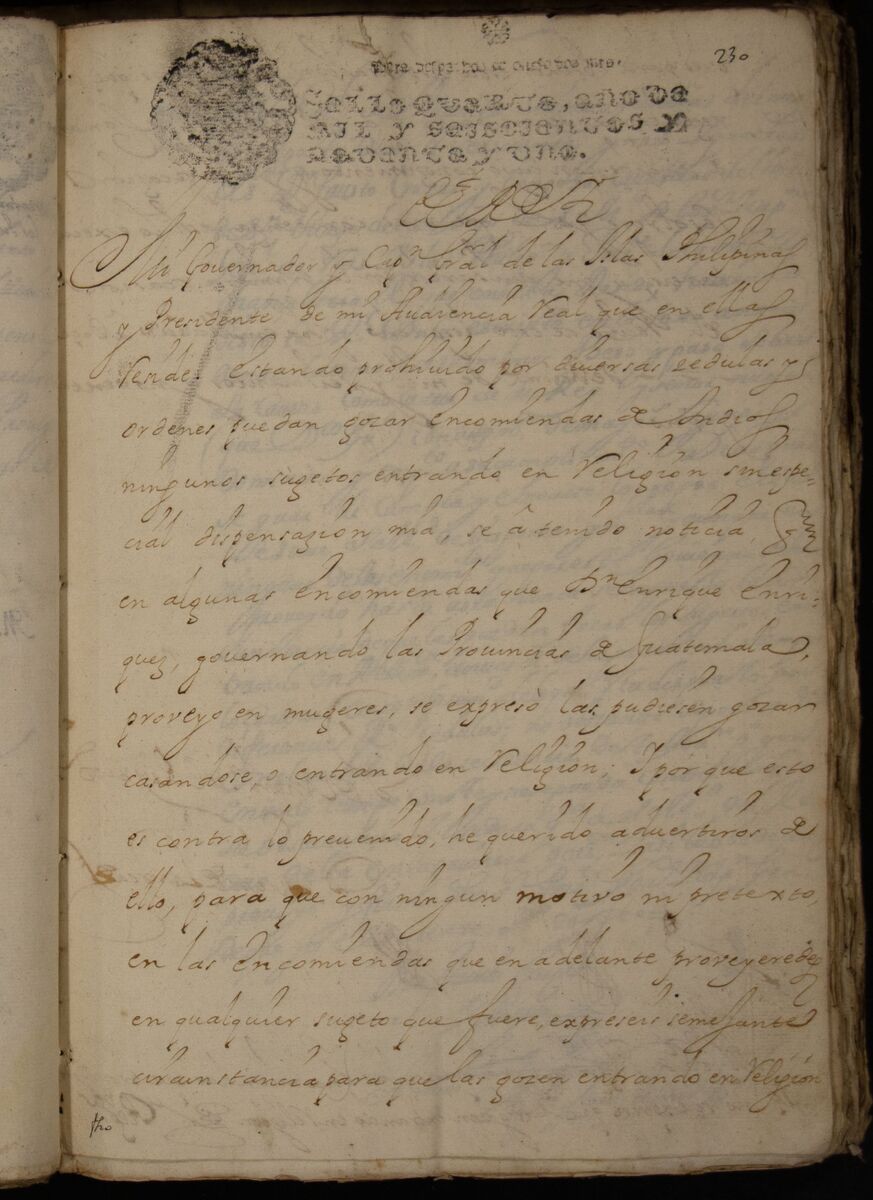 230
Para despachos de oficio dos mrs.
SELLO QVARTO, AÑO DE
MIL Y SEISCIENTOS Y
NOVENTA Y VNO.
El Rey
Mi Governador y Capn Gral de las Islas Philipinas
y Presidente de mi Audiencia Real que en ellas
reside. Estando prohiuido por diuersas zedulas y
ordenes puedan gozar encomiendas de Indios
ningunos sugetos entrando en Religion sin espe-
cial dispensazion mia, se à tenido noticia,
en algunas encomiendas que Dn Enrique Enri-
quez, governando las Prouincias de Guatemala,
proveyo en mugeres, se expresò las pudiesen gozar
casandose, o entrando en Religion; I por que esto
es contra lo preuenido, he querido aduertiros de
ello, para que con ningun motivo ni pretexto,
en las encomiendas que en adelante proveyeredes
en qualquier sugeto que fuere, expreseis semejante
circunstancia para que las gozen entrando en Religion